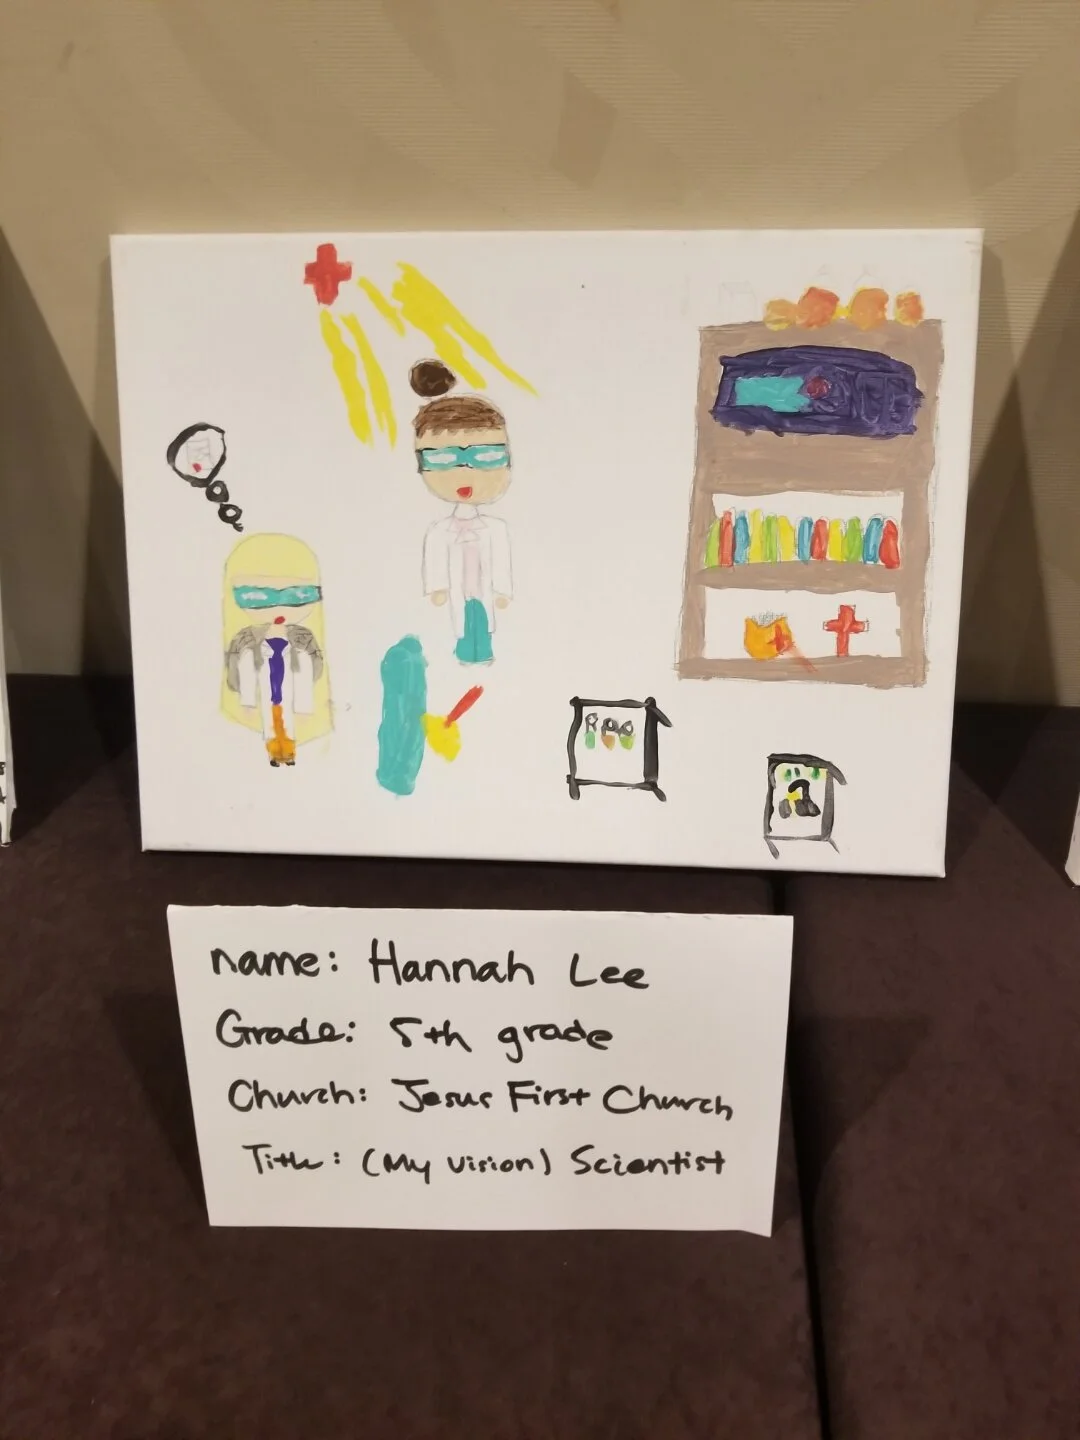 name: Hannah Lee
Grade: 5th grade
Church: Jesus First Church
Title: (My vision) Scientist